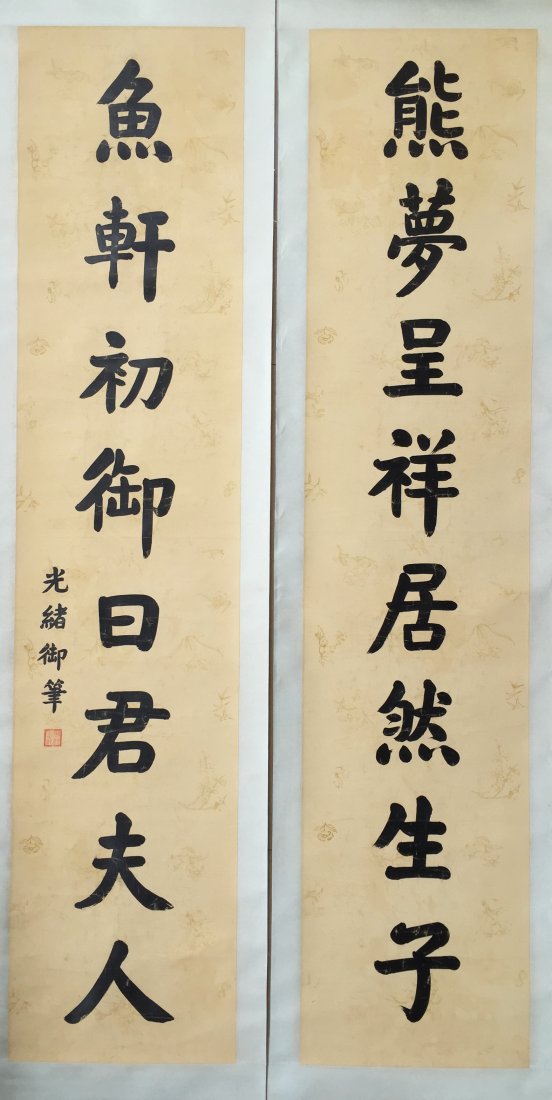 熊夢呈祥居然生子
魚軒初御曰君夫人
光緒御筆